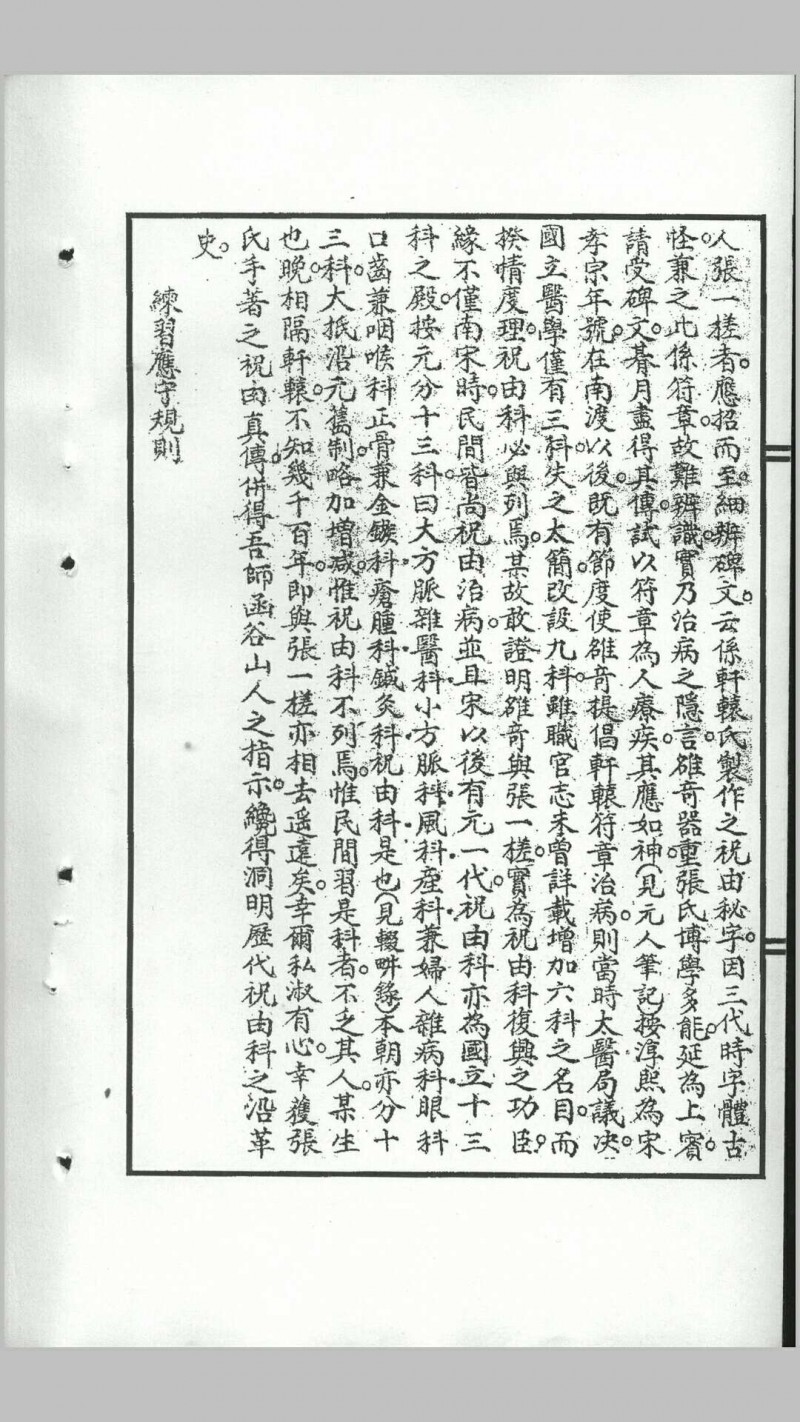 人張一槎者。應招而至。細辨碑文。云係軒轅氏製作之祝由秘字。因三代時字體古
怪。兼之此係符章。故難辨識。實乃治病之隱言。雒奇器重張氏博學多能。延為上賓。
請受碑文。朞月盡得其傳。試以符章為人療疾。其應如神(見元人筆記)按淳熙為宋
孝宗年號。在南渡以後。既有節度使雒奇提倡軒轅符章治病。則當時太醫局議決。
國立醫學僅有三科。失之太簡。改設九科。雖職官志未曾詳載增加六科之名目。而
揆情度理。祝由科必與列焉。某故敢證明雒奇與張一槎。實為祝由科復興之功臣。
緣不僅南宋時。民間皆尚祝由治病。並且宋以後有元一代。祝由科亦為國立十三
科之殿。按元分十三科。曰大方脈雜醫科。小方脈科。風科。產科兼婦人雜病科。眼科
口齒兼咽喉科。正骨兼金鏃科。瘡腫科。鍼灸科。祝由科是也(見輟畊錄)本朝亦分十
三科。大抵沿元舊制。略加增減。惟祝由科不列焉。惟民間習是科者。不乏其人。某生
也晚。相隔軒轅。不知幾千百年。即與張一槎亦相去遥遠矣。幸爾私淑有心。幸獲張
氏手著之祝由真傳。併得吾師函谷山人之指示。纔得洞明歷代祝由科之沿革
史。
練習應守規則